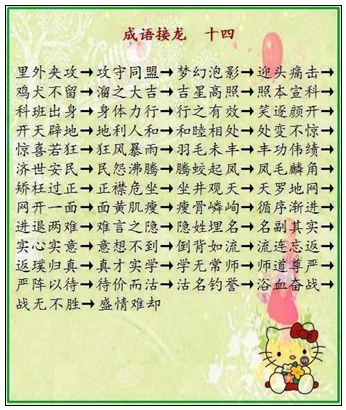 成语接龙　十四
里外夹攻→攻守同盟→梦幻泡影→迎头痛击→
鸡犬不留→溜之大吉→吉星高照→照本宣科→
科班出身→身体力行→行之有效→笑逐颜开→
开天辟地→地利人和→和睦相处→处变不惊→
惊喜若狂→狂风暴雨→羽毛未丰→丰功伟绩→
济世安民→民怨沸腾→腾蛟起凤→凤毛麟角→
矫枉过正→正襟危坐→坐井观天→天罗地网→
网开一面→面黄肌瘦→瘦骨嶙峋→循序渐进→
进退两难→难言之隐→隐姓埋名→名副其实→
实心实意→意想不到→倒背如流→流连忘返→
返璞归真→真才实学→学无常师→师道尊严→
严阵以待→待价而沽→沽名钓誉→浴血奋战→
战无不胜→盛情难却